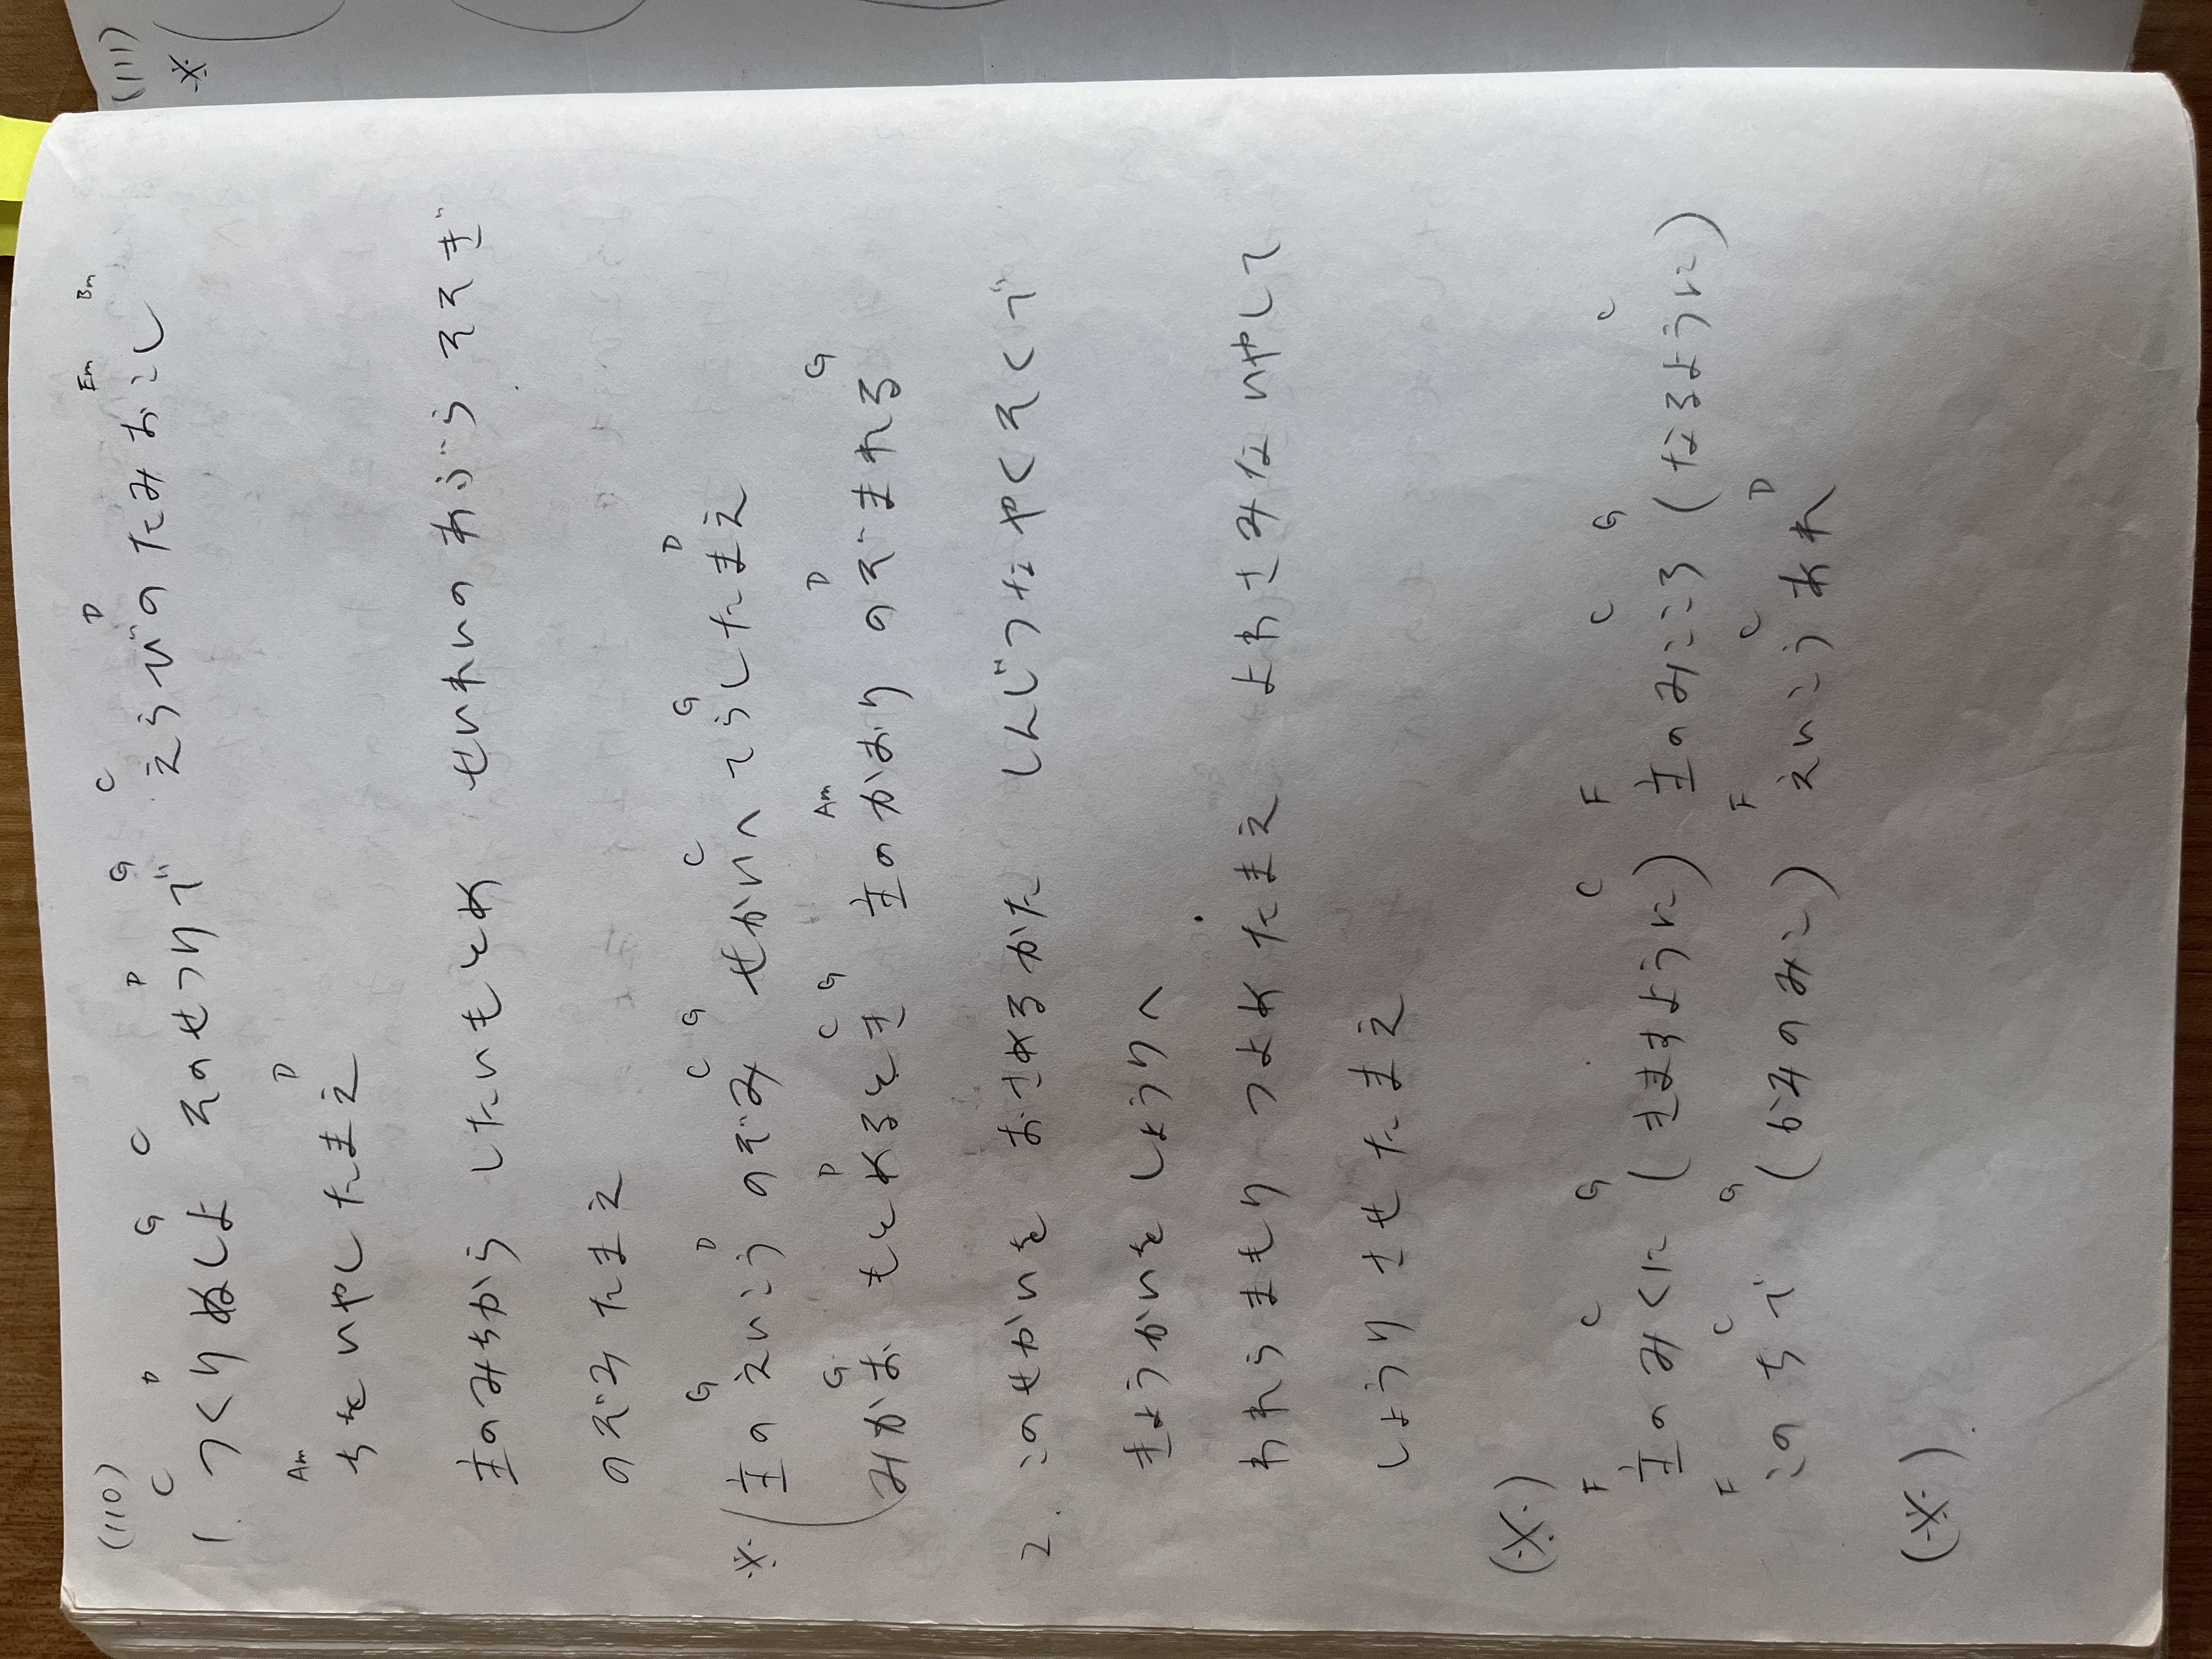 (111)
※
(110)
C D G C D G C D Em Bm
1. つくりぬしよ そのせつりで えらびのたみおこし
Am D
ちをいやしたまえ
主のみちから したいもとめ せいれいのあぶら そそぎ
のぞみたまえ
G D C G C G D
※(主のえいこう のぞみ せかいへ てらしたまえ
G D C G Am D G
みかお もとめるとき 主のかおり のぞまれる
2. このせかいを おさめるかた しんじつな やくそくで
きょうかいを しょうりへ
われらまもり つよめたまえ よわさみな いやして
しょうり させたまえ
(※)
F C G C F C G C
主のみくに (きますように) 主のみこころ (なるように)
F C G F C D
このちで (かみのみこ) えいこう あれ
(※).